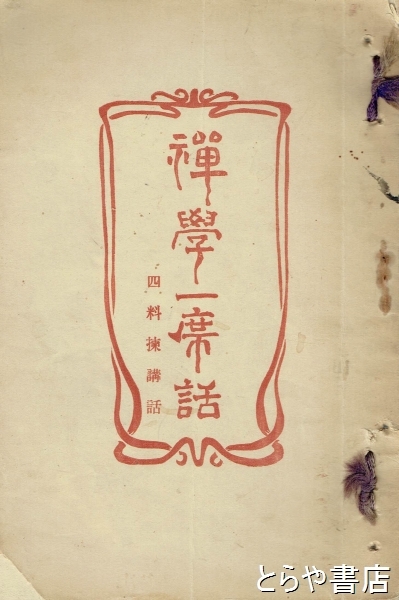 禪學一席話
四料揀講話
とらや書店